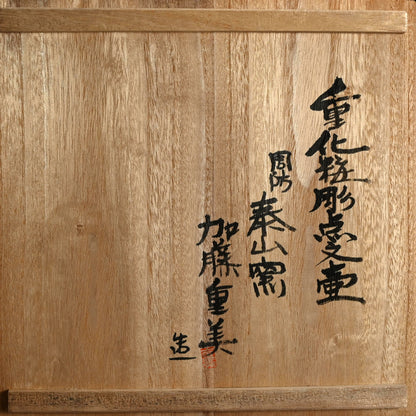 重化粧彫点文壷
周防
泰山窯
加藤重美
造